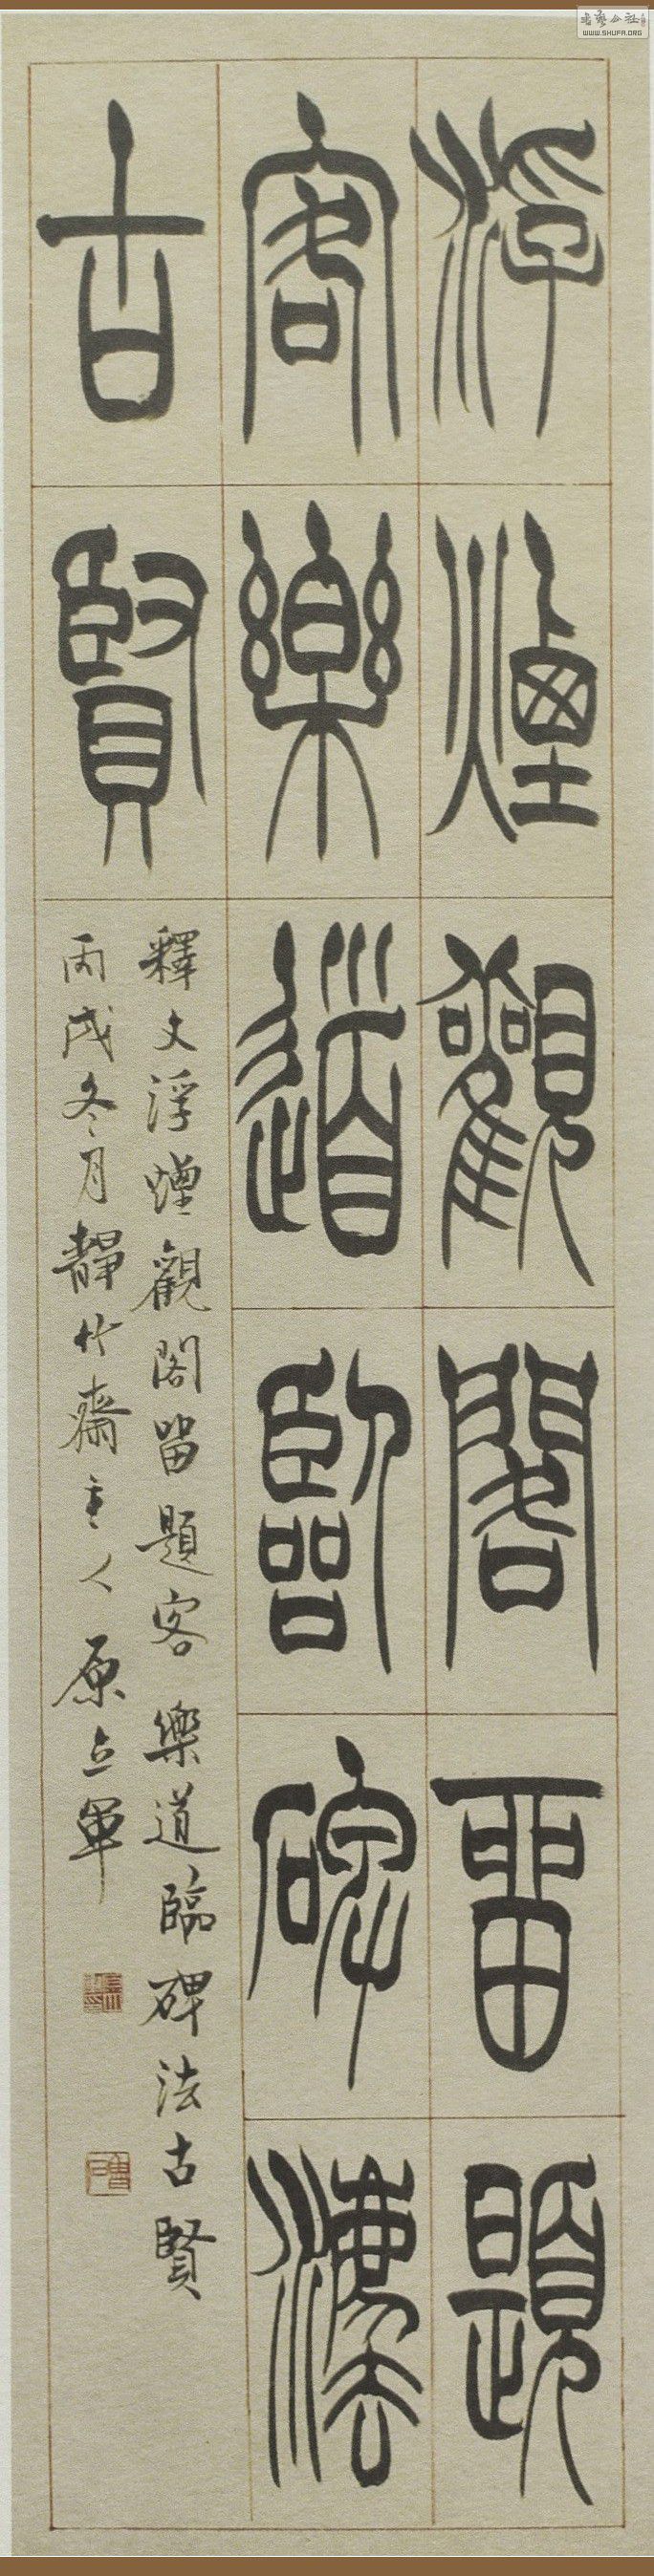 浮煙觀閣畱題
客樂道臨碑灋
古賢
釋文浮煙觀閣畱題客樂道臨碑法古賢
丙戌冬月靜竹齋主人原立軍
WWW.SHUFA.ORG